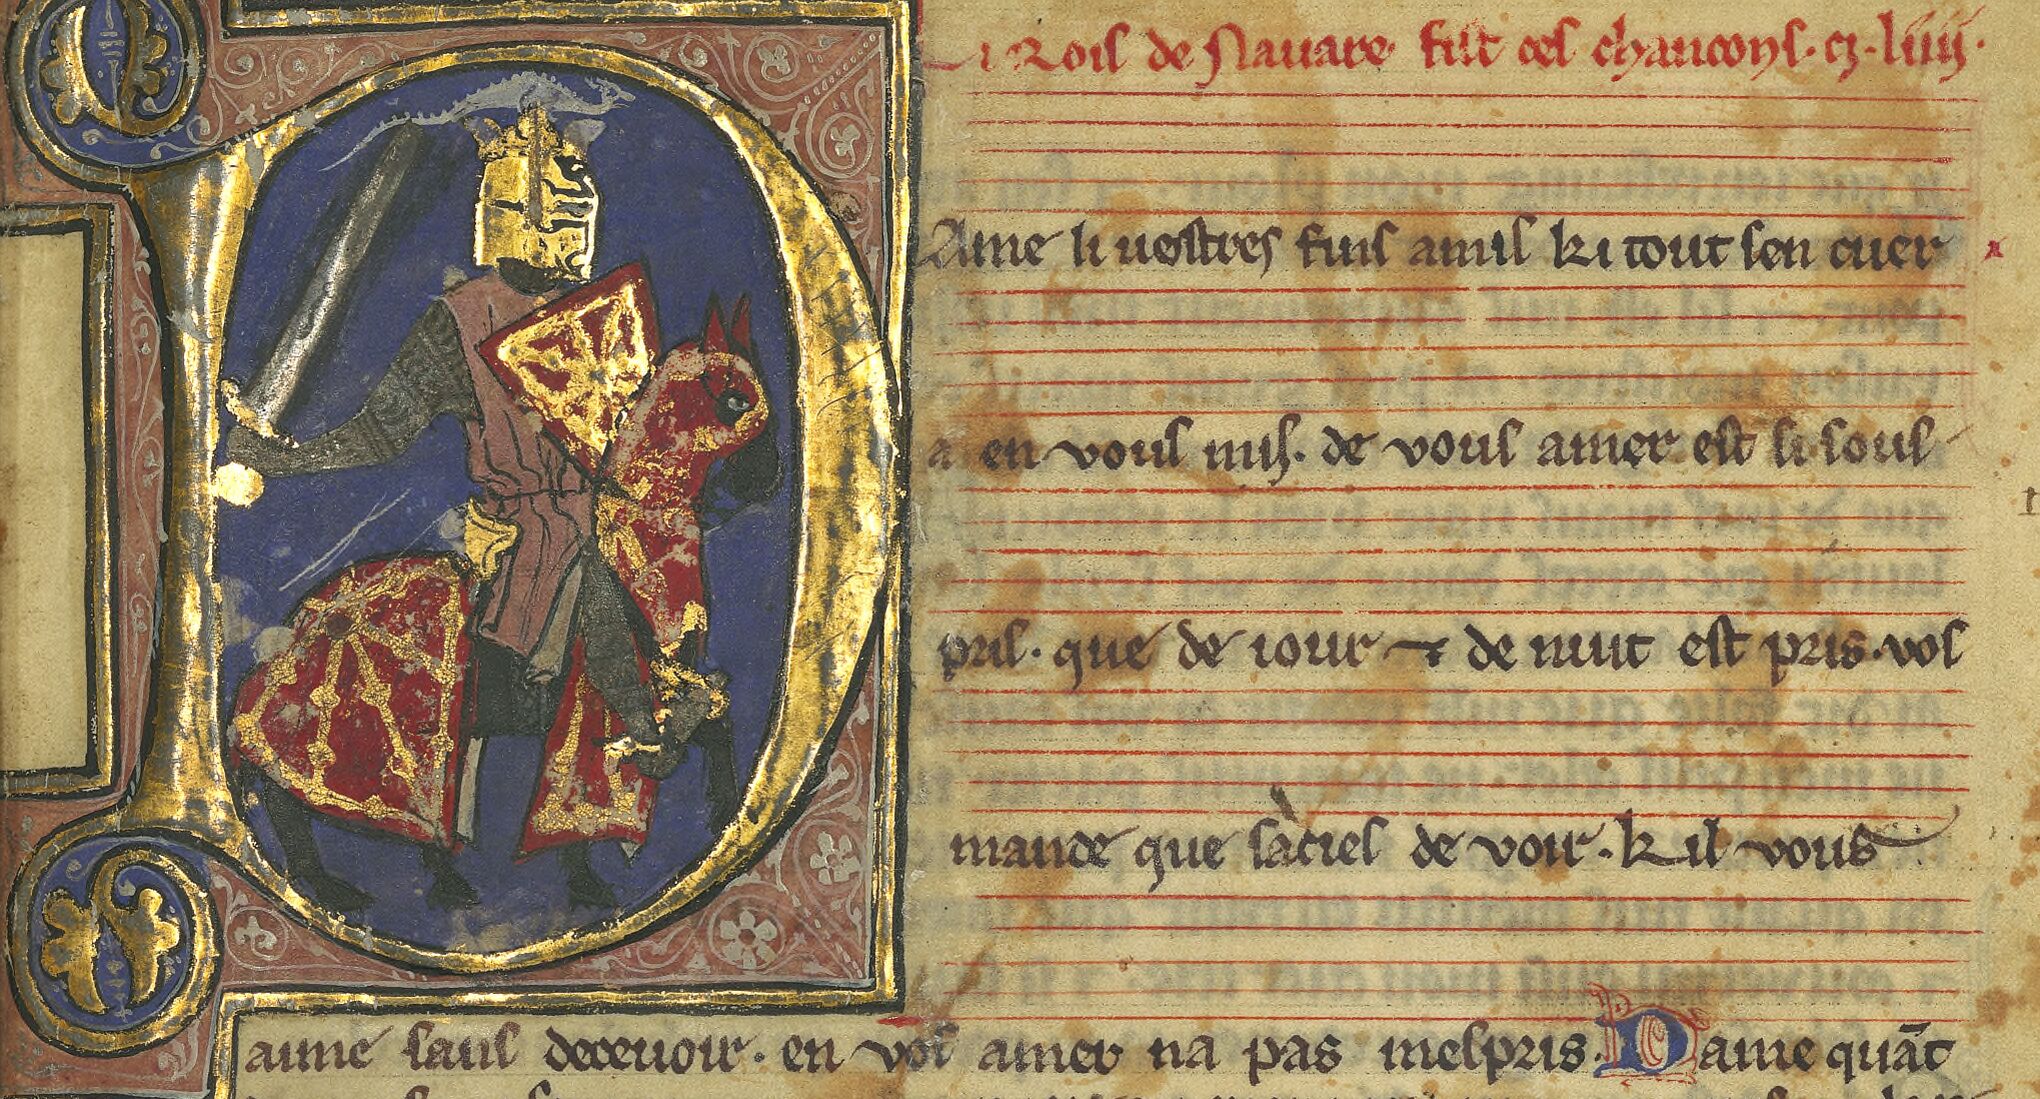 Li Rois de Navare fist ces chancons. ⁊. liiij.
DAme li vostres fins amis ki tout sen cuer
a en vous mis. de vous amer est si sous
pris. que de iour ⁊ de nuit est pris. vos
mande que saciés de voir. k il vous
aime sans decevoir. en vos amer na pas mespris. Dame quāt